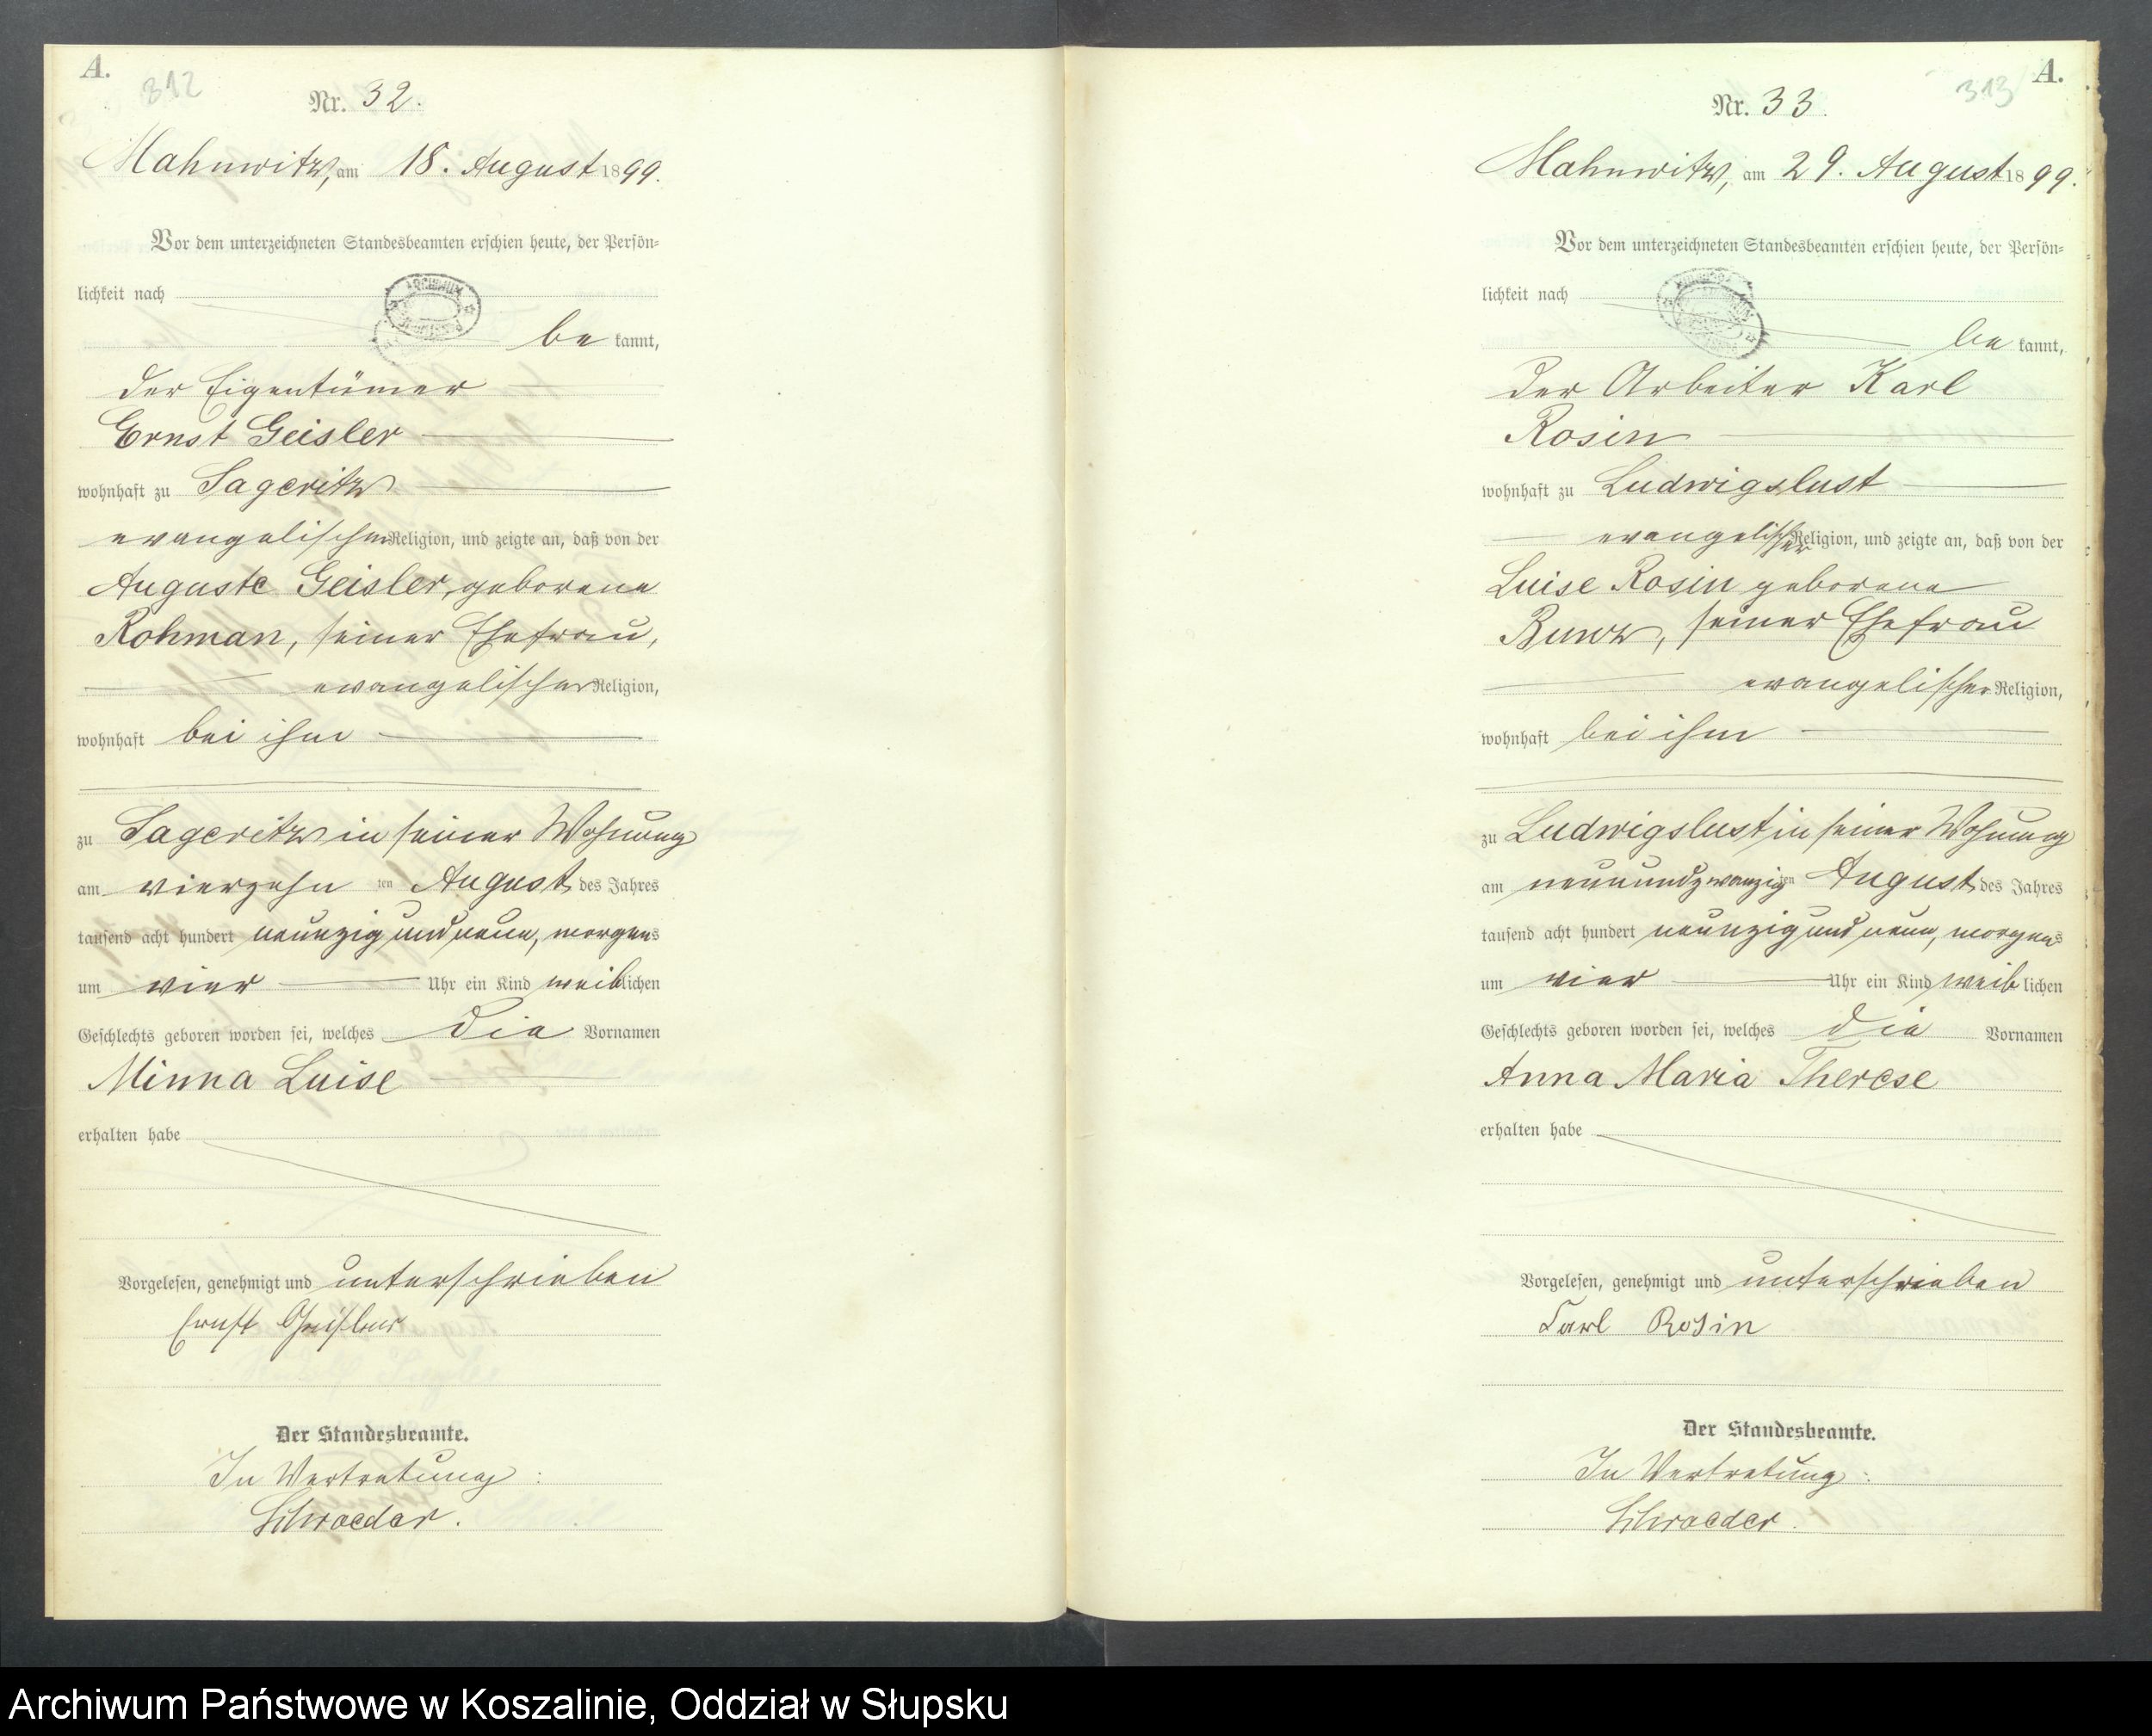 A.
312
Nr. 32.
Mahnwitz, am 18. August 1899.
Vor dem unterzeichneten Standesbeamten erschien heute, der Persön-
lichkeit nach
be kannt,
der Eigentümer
Ernst Geisler
wohnhaft zu Sageritz
evangelischer Religion, und zeigte an, daß von der
Auguste Geisler, geborene
Rohman, seiner Ehefrau,
evangelischer Religion,
wohnhaft bei ihm
zu Sageritz in seiner Wohnung
am vierzehn ten August des Jahres
tausend acht hundert neunzig und neun, morgens
um vier Uhr ein Kind weiblichen
Geschlechts geboren worden sei, welches die Vornamen
Minna Luise
erhalten habe
Vorgelesen, genehmigt und unterschrieben
Ernst Geisler
Der Standesbeamte.
In Vertretung:
Schroeder.
A.
313
Nr. 33.
Mahnwitz, am 29. August 1899.
Vor dem unterzeichneten Standesbeamten erschien heute, der Persön-
lichkeit nach
be kannt,
der Arbeiter Karl
Rosin
wohnhaft zu Ludwigslust
evangelischer Religion, und zeigte an, daß von der
Luise Rosin geborene
seiner Ehefrau
evangelischer Religion,
wohnhaft bei ihm
zu Ludwigslust in seiner Wohnung
am neunundzwanzigten August des Jahres
tausend acht hundert neunzig und neun, morgens
um vier Uhr ein Kind weiblichen
Geschlechts geboren worden sei, welches die Vornamen
Anna Maria Therese
erhalten habe
Vorgelesen, genehmigt und unterschrieben
Carl Rosin
Der Standesbeamte.
In Vertretung:
Schroeder.
Archiwum Państwowe w Koszalinie, Oddział w Słupsku